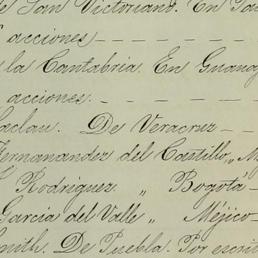 de San Victoriano. En
acciones
la Cantabria. En
acciones.
De Veracruz
Hernanandez del Castillo, „ M
Rodriguez „ Bogotá
García del Valle „ Méjico
Smith. De Puebla. Por escrit